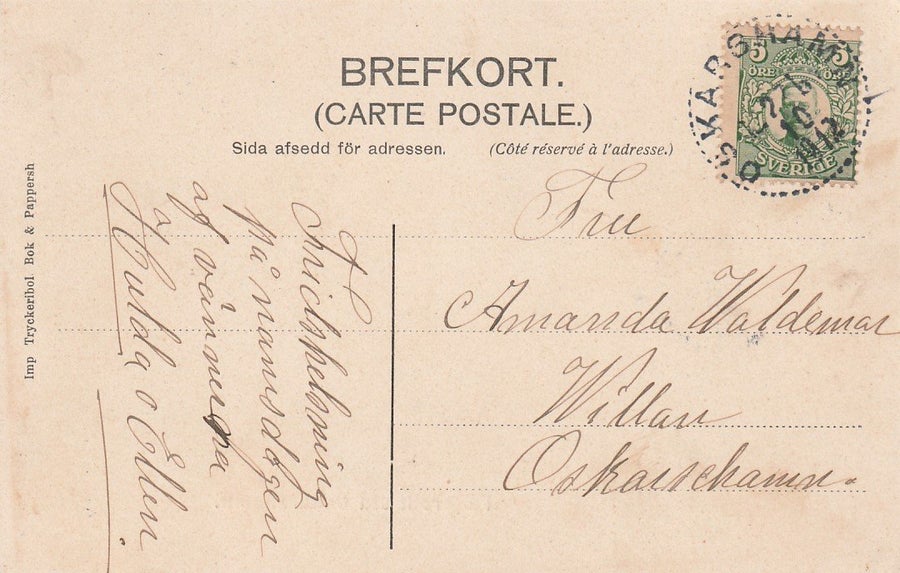 BREFKORT.
(CARTE POSTALE.)
Sida afsedd för adressen.
(Côté réservé à l'adresse.)
5 5
ÖRE ÖRE
SVERIGE
OSKARSHAMN
1912
Fru
Amanda Waldemar
Willan
Oskarschamn.
på namnsdagen
af vännerna
Hulda o Ellen
Imp Tryckeribol Bok & Pappersh